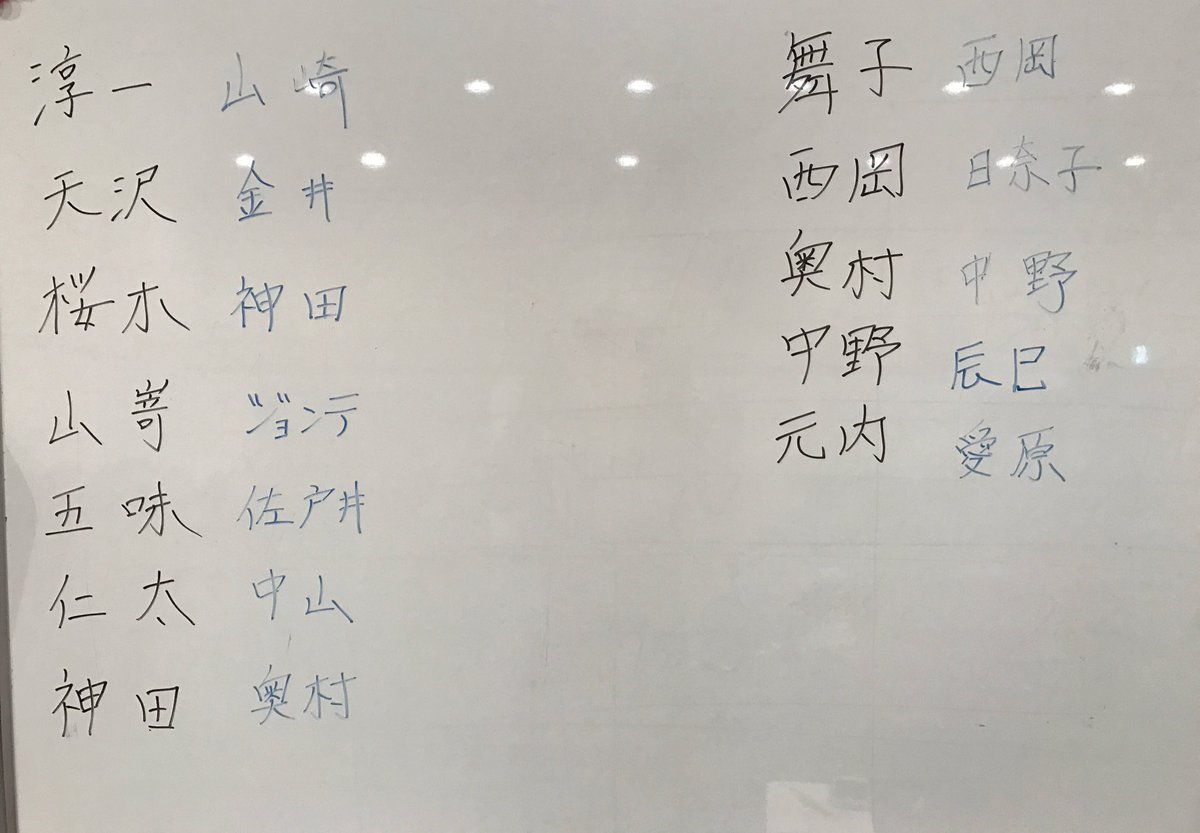 淳一 山崎
天沢 金井
桜木 神田
山嵜 ジョンテ
五味 佐戸井
仁太 中山
神田 奥村
舞子 西岡
西岡 日奈子
奥村 中野
中野 辰巳
元内 愛原